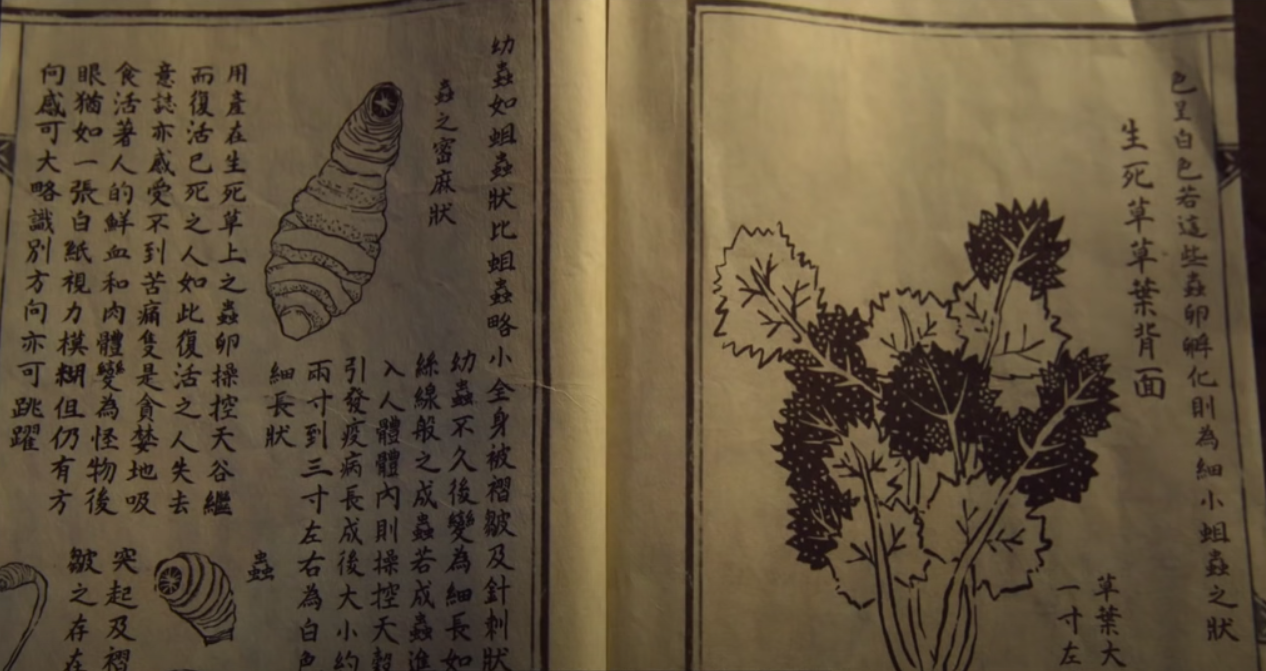 色呈白色若這些蟲卵孵化則為細小蛆蟲之狀
生死草草葉背面
草葉大
一寸左
幼蟲如蛆蟲狀比蛆蟲略小全身被褶皺及針刺狀
蟲之密麻狀
幼蟲不久後變為細長如
絲線般之成蟲若成蟲進
入人體體內則操控天穀
引發疫病長成後大小約
兩寸到三寸左右為白色
細長狀
用產在生死草上之蟲卵操控天谷繼
而復活已死之人如此復活之人失去
意誌亦感受不到苦痛隻是貪婪地吸
食活著人的鮮血和肉體變為怪物後
眼猶如一張白紙視力模糊但仍有方
向感可大略識別方向亦可跳躍
蟲
突起及褶
皺之存在